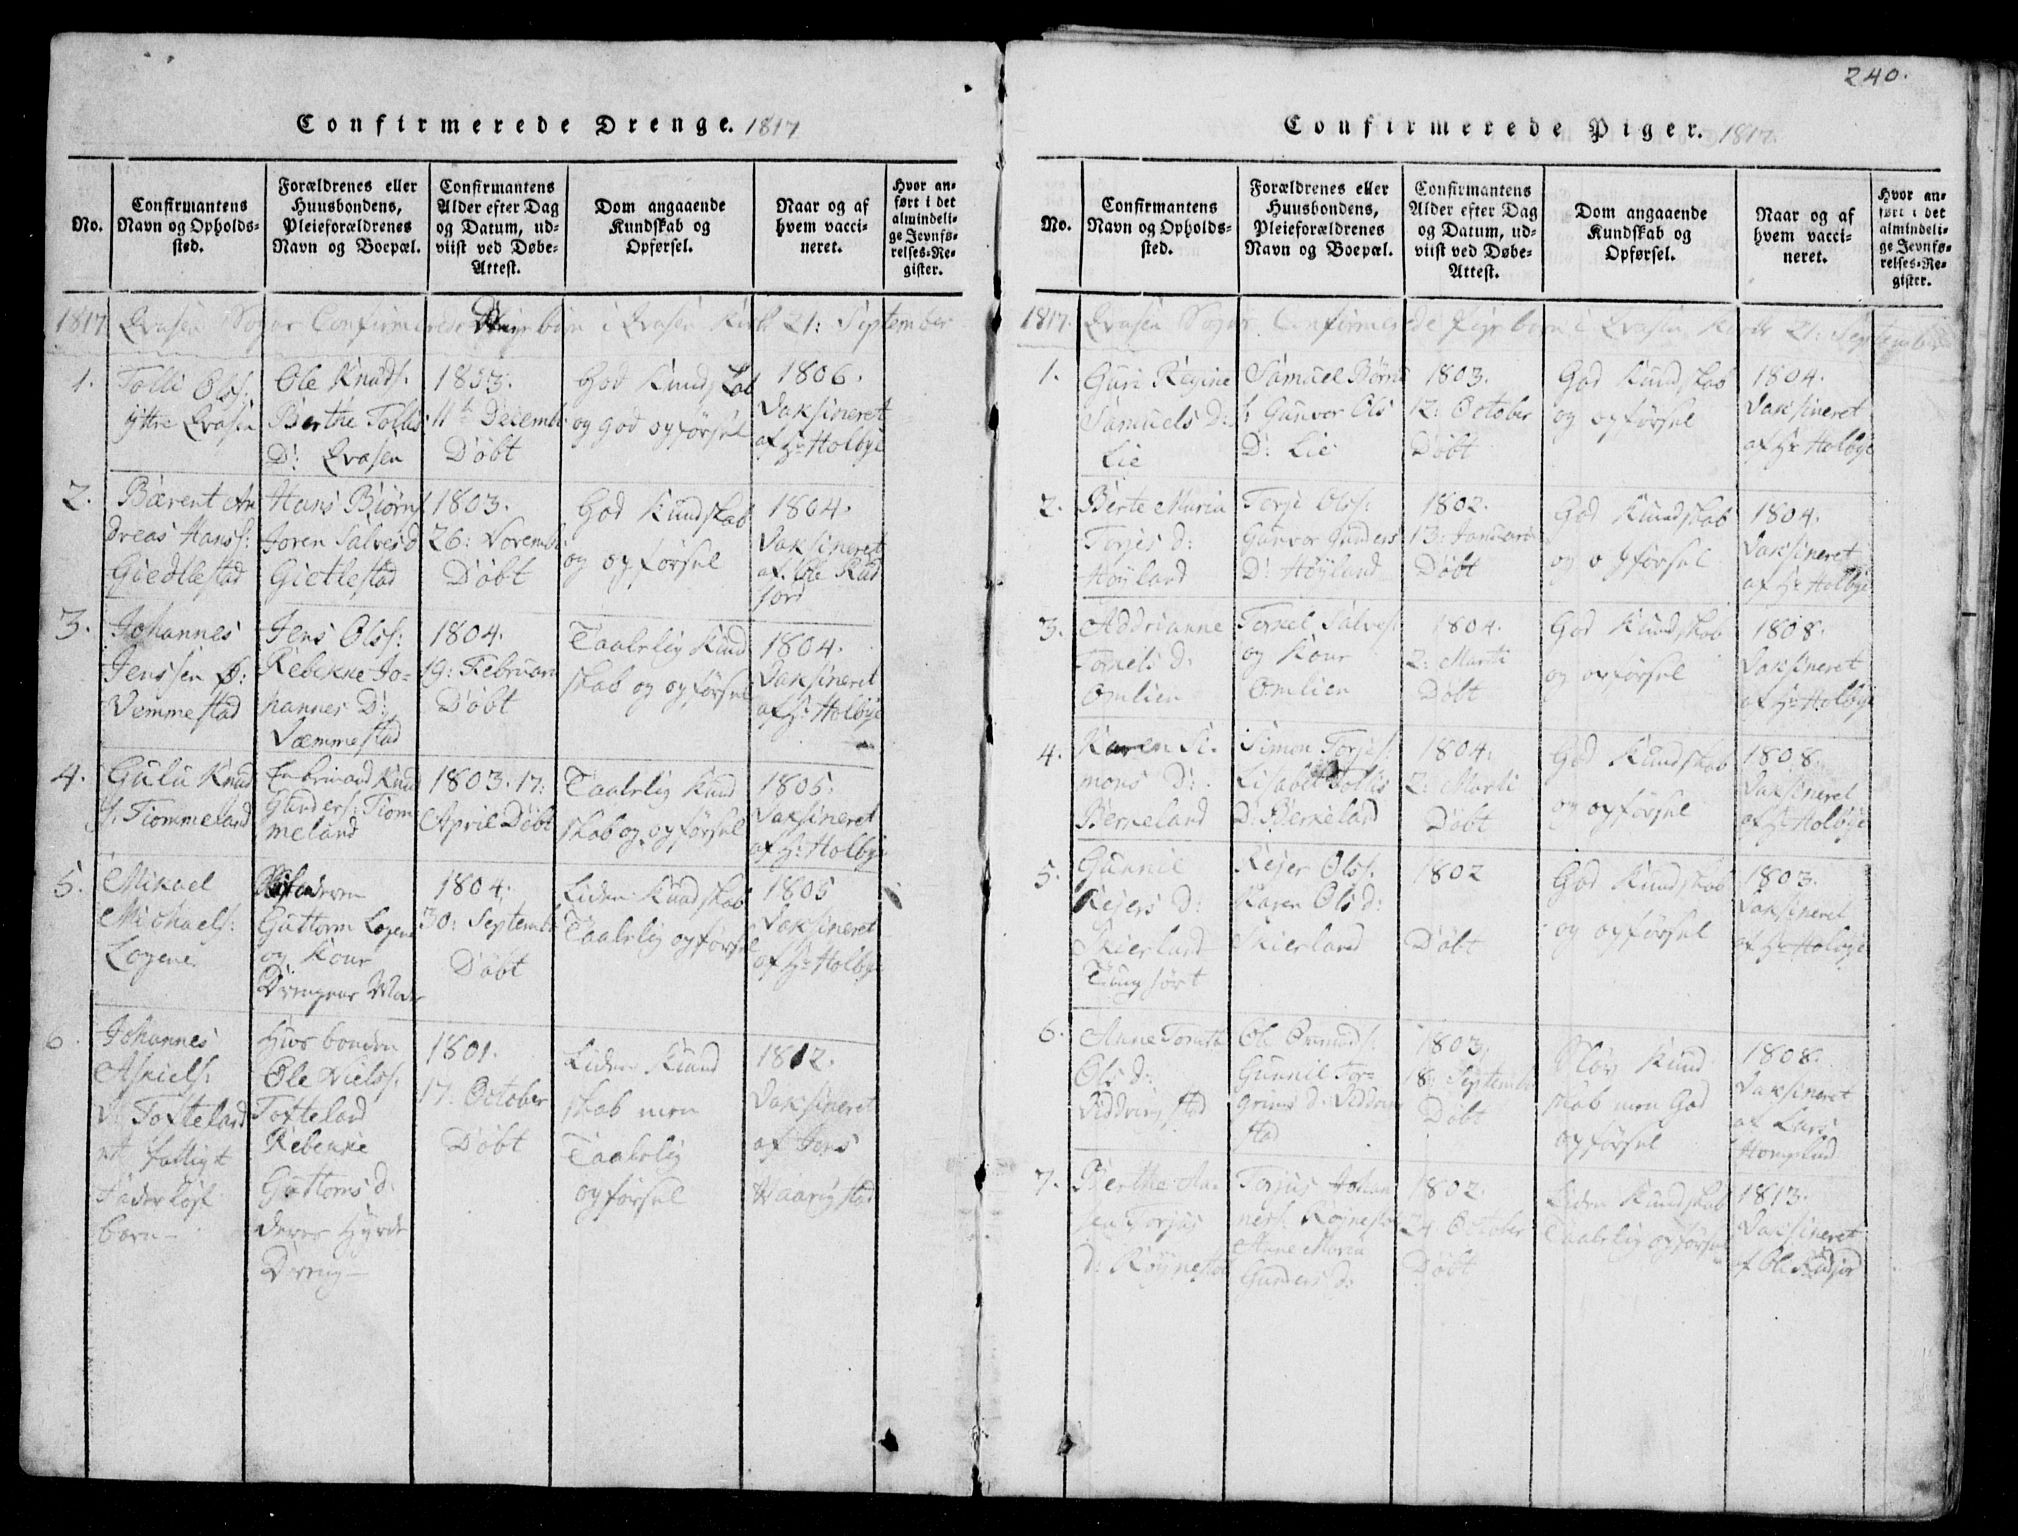 Confirmerede Drenge. 1817
No.
Confirmantens
Navn og Opholds-
sted.
Forældrenes eller
Huusbondens,
Pleieforældrenes
Navn og Boepæl.
Confirmantens
Alder efter Dag
og Datum, ud-
viist ved Døbe-
Attest.
Dom angaaende
Kundskab og
Opførsel.
Naar og af
hvem vacci-
neret.
Hvor an-
ført i det
almindeli-
ge Jevnfø-
relses-Re-
gister.
1817 Qvasen Sogns Confirmerede i Qvasen Kirk 21: September
1.
Tolli Ols:
yttre Qvasen
Ole Knuds:
Berthe Tollis
D: Qvasen
11te Decemb:
Døbt
God Kundskab
og god opførsel
1806.
Vaksineret
af Hr Holbye
2.
Bærent An
dreas Hanss:
Giedlestad
Hans Biørns
Joren Salves d
Gietlestad
1803.
26: Novemb:
Døbt
God Kundskab
og opførsel
1804.
Vaksineret
af Ole Rød
fjord
3.
Johannes
Jenssen Ø:
Vemmestad
Jens Olss:
Rebekke Jo-
hannes D:
Væmmestad
1804.
19: Februari
Døbt
Taalelig Kund
skab og opførsel
1804.
Vaksineret
af Hr Holbye
4.
Gulu Knud
y. Tiommeland
Knud
Gunders: Tiom
meland
1803. 17:
April Døbt
Taalelig Kund
skab og opførsel
1805.
Vaksineret
af Hr Holbye
5.
Mikael
Michaels:
Logene
Guttorm Logene
og Kone
Drengens Moder
1804.
30: Septemb:
Døbt
Liden Kundskab
Taalelig opførsel
1805
Vaksineret
af Hr Holbye
6.
Johannes
Askiels:
Tofteland
et fattigt
Faderløst
barn—
Husbonden
Ole Niels:
Tofteland
Rebekke
Guttoms d:
deres Hyrde
Dreng—
1801.
17. October
Døbt
Liden Kund
skab men
Taalelig
opførsel
1812.
Vaksineret
af Jens
Waarigstad
240.
Confirmerede Piger. 1817.
No.
Confirmantens
Navn og Opholds-
sted.
Forældrenes eller
Huusbondens,
Pleieforældrenes
Navn og Boepæl.
Confirmantens
Alder efter Dag
og Datum, ud-
viist ved Døbe-
Attest.
Dom angaaende
Kundskab og
Opførsel.
Naar og af
hvem vacci-
neret.
Hvor an-
ført i det
almindeli-
ge Jevnfø-
relses-Re-
gister.
1817. Qvasen Sogns Confirmerede Pigebørn i Qvasen Kirk 21: September
1.
Guri Regine
Samuels D:
Lie
Samuel Børu
Gunvor Ols
D: Lie
1803.
12: October
Døbt
God Kundskab
og opførsel
1804.
Vaksineret
af Hr Holbye
2.
Berte Maria
Torjes d:
Høyland
Torje Olss:
Gunvor Gunders
D: Høyland
1802.
13: Januari
Døbt
God Kundskab
og opførsel
1804.
Vaksineret
af Hr Holbye
3.
Addrianne
Torkels d:
Omlien
Torkel Salves:
og Kone
Omlien
1804.
2: Marti
Døbt
God Kundskab
og opførsel
1808.
Vaksineret
af Hr Holbye
4.
Karen Si-
mons D:
Berkeland
Simon Torjes:
Lisabet Tollis
D: Berkeland
1804:
2: Marti
Døbt
God Kundskab
og opførsel
1808.
Vaksineret
af Hr Holbye
5.
Gunnil
Rejers D:
Skierland
Rejer Olss:
Karen Ols d:
Skierland
1802
Døbt
God Kundskab
og opførsel
1803.
Vaksineret
af Hr Holbye
6.
Anne
Ols d:
Viddringstad
Ole Omunds:
Gunnil Tor-
grims d: Viddring
stad
1803.
18: Septemb:
Døbt
Sløv Kund
skab men God
opførsel
1808.
Vaksineret
af Lars
Homelund
7.
Berthe An-
Torjus
d: Røynestol
Torjus Johan
ness: Røynestol
Anne Maria
Gunders d:
1802.
24. October
Døbt
Liden Kundskab
Taalelig opførsel
1813.
Vaksineret
af Ole Rødfjord